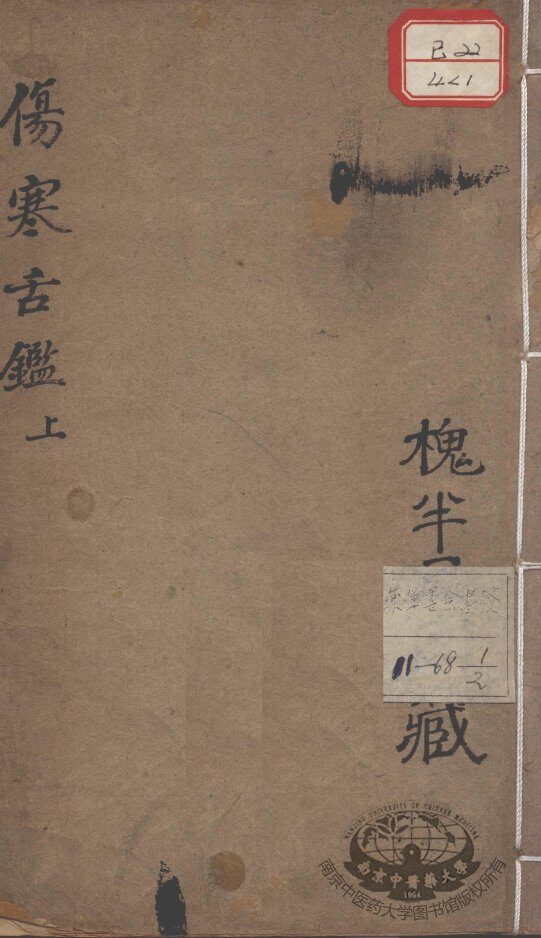 傷寒舌鑑上
已22
441
槐半
藏
11-68-1/2
NANJING UNIVERSITY OF CHINESE MEDICINE
南京中醫藥大學
1954
南京中医药大学图书馆版权所有